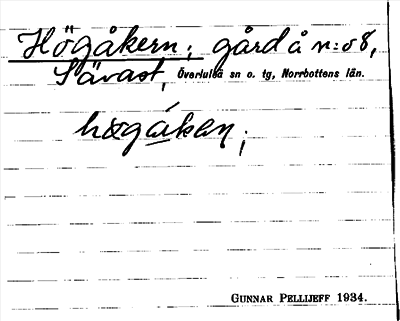 Högåkern; gård å n:o 8,
Sävast, Överluleå sn o. tg, Norrbottens län.
högåkan;
GUNNAR PELLIJEFF 1934.